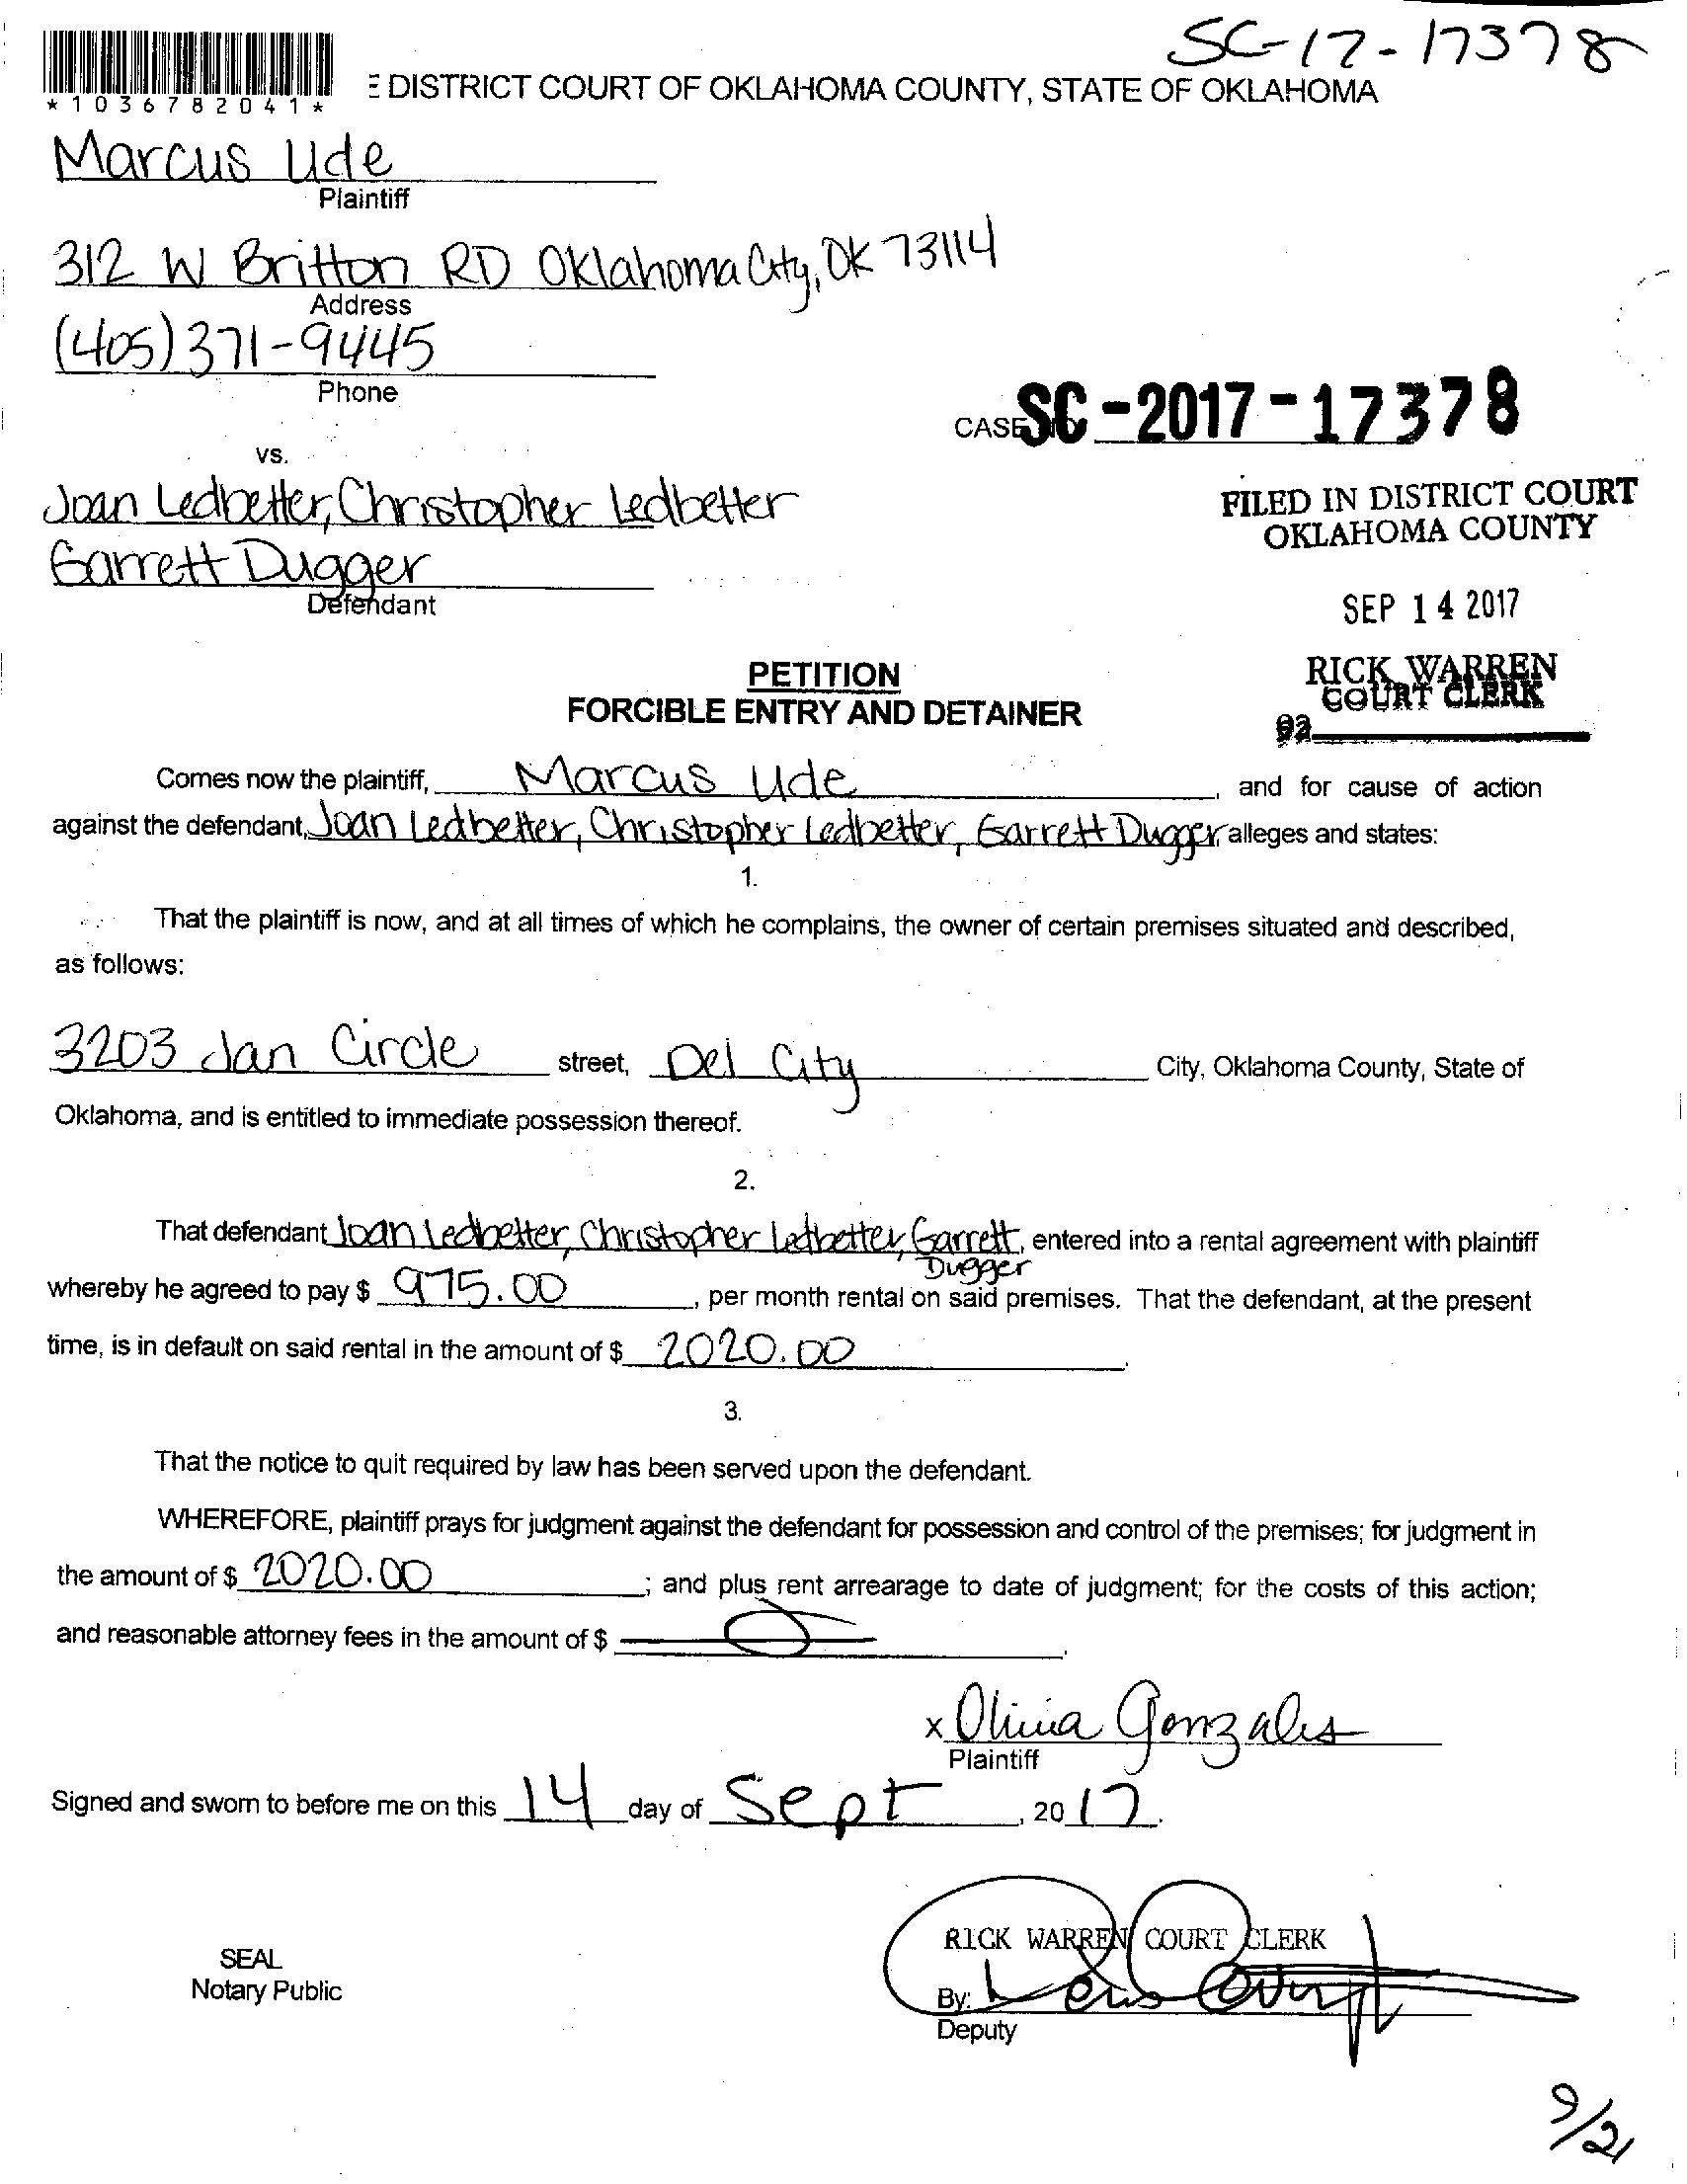 SC-17-17378
*1036782041*
E DISTRICT COURT OF OKLAHOMA COUNTY, STATE OF OKLAHOMA
Marcus Ude
Plaintiff
312 W Britton RD Oklahoma City, OK 73114
Address
(405) 371-9445
Phone
CASE SC-2017-17378
vs.
Joan Ledbetter, Christopher Ledbetter
Garrett Dugger
Defendant
FILED IN DISTRICT COURT
OKLAHOMA COUNTY
SEP 14 2017
RICK WARREN
COURT CLERK
PETITION
FORCIBLE ENTRY AND DETAINER
Comes now the plaintiff, Marcus Ude, and for cause of action
against the defendant, Joan Ledbetter, Christopher Ledbetter, Garrett Dugger, alleges and states:
1.
That the plaintiff is now, and at all times of which he complains, the owner of certain premises situated and described,
as follows:
3203 Jan Circle street, Del City City, Oklahoma County, State of
Oklahoma, and is entitled to immediate possession thereof.
2.
That defendant Joan Ledbetter, Christopher Ledbetter, Garrett, entered into a rental agreement with plaintiff
Dugger
whereby he agreed to pay $ 975.00, per month rental on said premises. That the defendant, at the present
time, is in default on said rental in the amount of $ 2020.00.
3.
That the notice to quit required by law has been served upon the defendant.
WHEREFORE, plaintiff prays for judgment against the defendant for possession and control of the premises; for judgment in
the amount of $ 2020.00; and plus rent arrearage to date of judgment; for the costs of this action;
and reasonable attorney fees in the amount of $
x Olivia Gonzales
Plaintiff
Signed and sworn to before me on this 14 day of Sept, 2017.
RICK WARREN COURT CLERK
SEAL
Notary Public
By:
Deputy
9/21